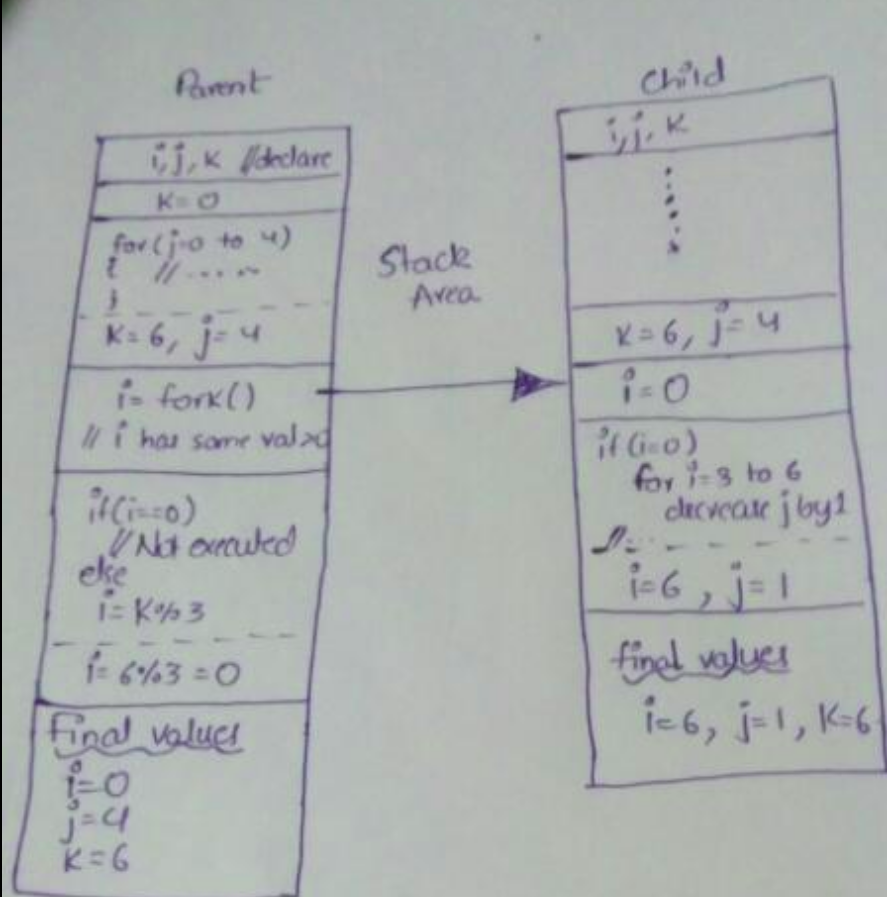 Parent
i, j, K //declare
K=0
for(j=0 to 4)
{ //.....
}
K=6, j=4
i= fork()
// i has some val>0
if(i==0)
//Not executed
else
i= K%3
i= 6%3 =0
Final values
i=0
j=4
K=6
Stack
Area
Child
i, j, K
K=6, j=4
i=0
if(i=0)
for i=3 to 6
decrease j by 1
//...
i=6, j=1
final values
i=6, j=1, K=6